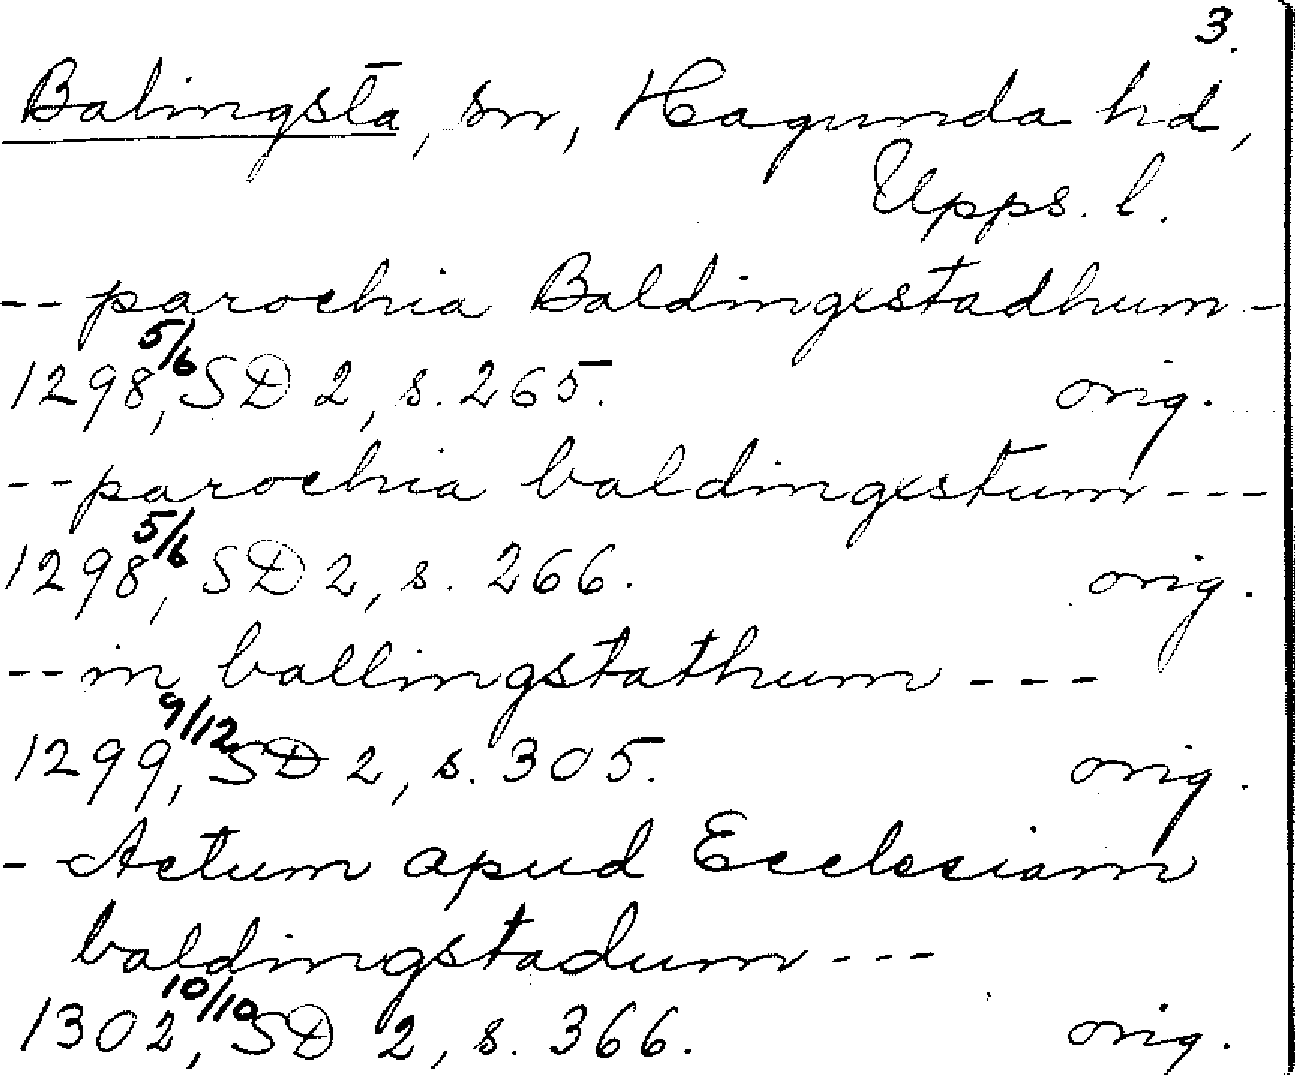 3.
Balingsta, sn, Hagunda hd,
Upps. l.
-- parochia Baldingestadhum -
1298 5/6, SD 2, s. 265. orig.
-- parochia baldingestum ---
1298 5/6, SD 2, s. 266. orig.
-- in ballingstathum ---
1299 9/12, SD 2, s. 305. orig.
- Actum apud Ecclesiam
baldingstadum ---
1302 10/10, SD 2, s. 366. orig.